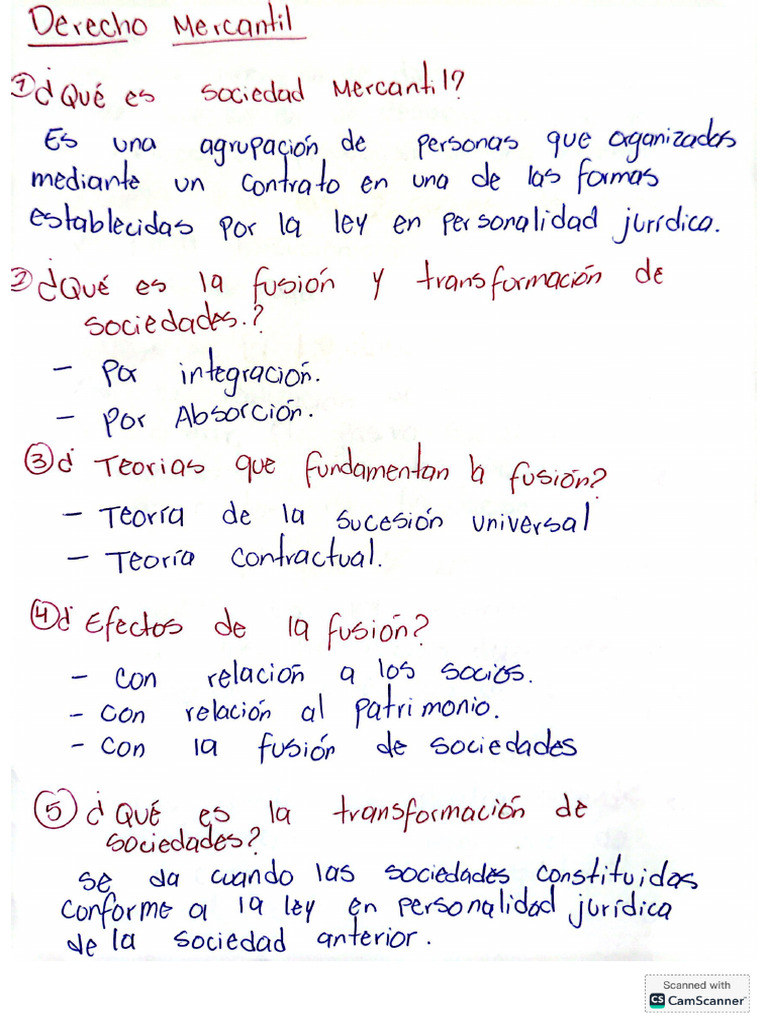 Derecho Mercantil
① ¿Qué es sociedad Mercantil?
Es una agrupación de personas que organizados
mediante un contrato en una de las formas
establecidas por la ley en personalidad jurídica.
② ¿Qué es la fusión y transformación de
sociedades.?
- Por integración.
- Por Absorción.
③ ¿ Teorias que fundamentan la fusión?
- Teoría de la sucesión universal
- Teoría contractual.
④ ¿ Efectos de la fusión?
- con relación a los socios.
- con relación al patrimonio.
- con la fusión de sociedades
⑤ ¿ Qué es la transformación de
sociedades?
se da cuando las sociedades constituidas
conforme a la ley en personalidad jurídica
de la sociedad anterior.
Scanned with
CS CamScanner